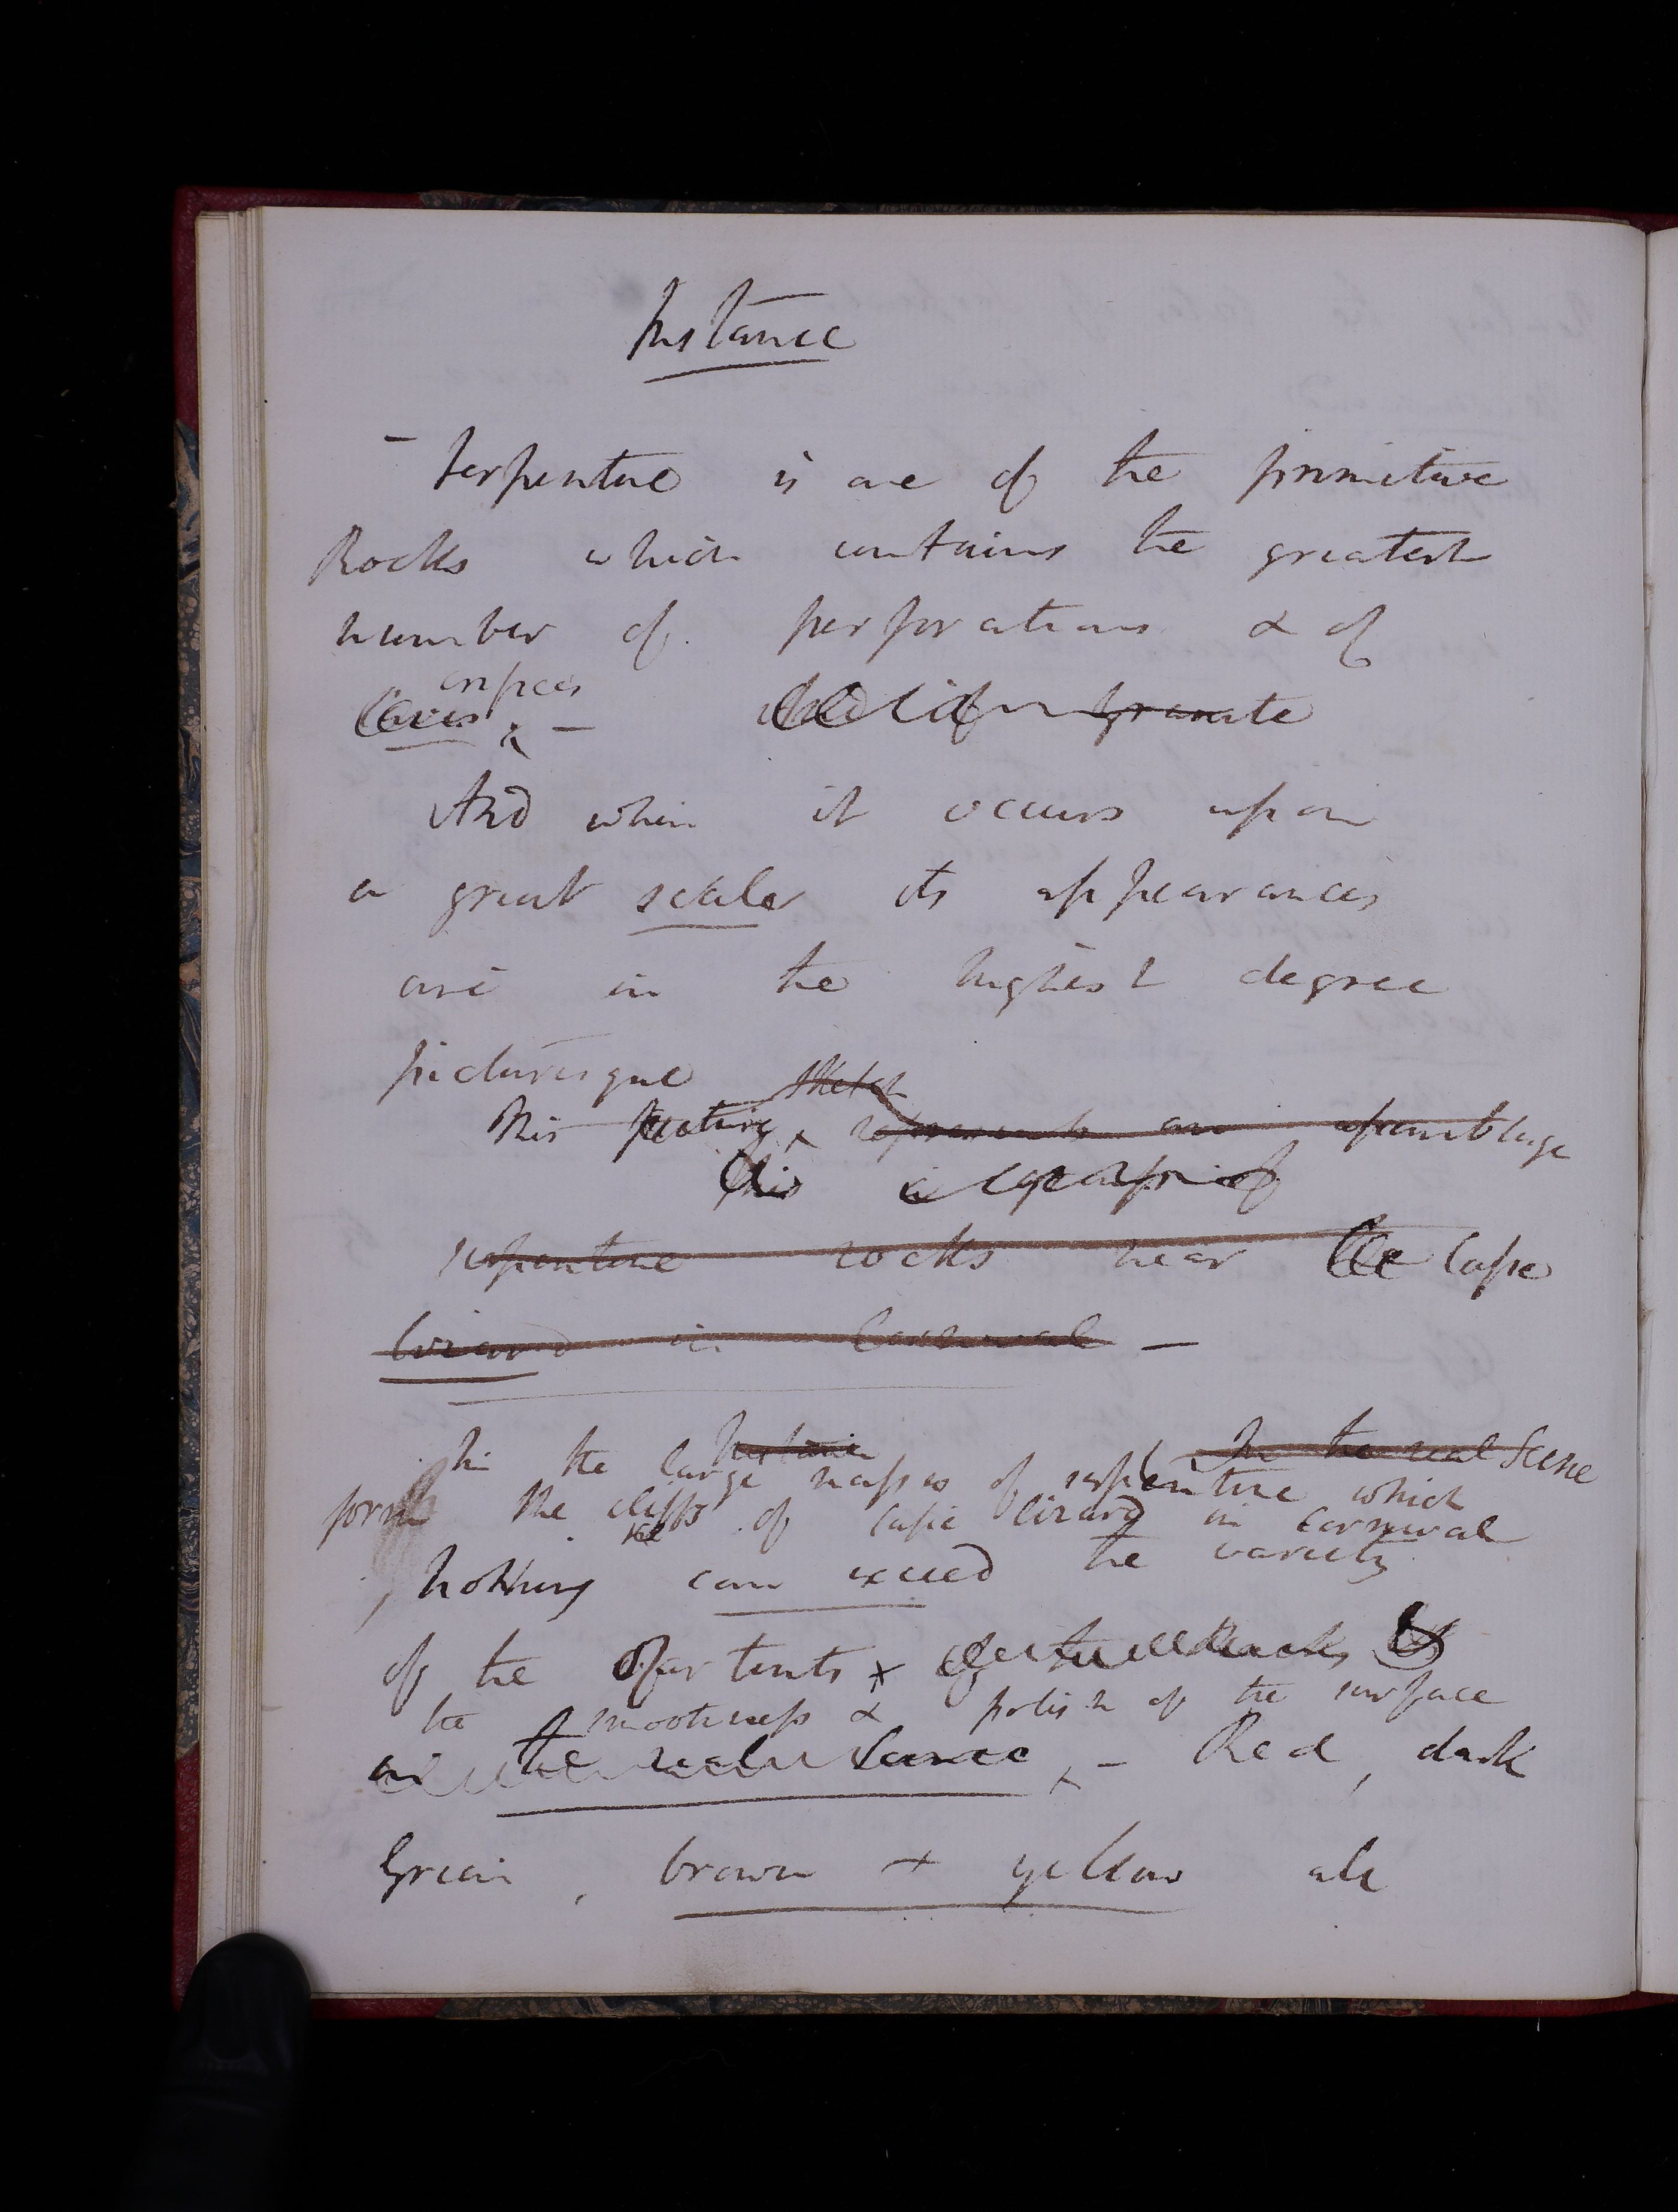 Instance
- Serpentine is one of the primitive
Rocks which contains the greatest
number of perforations & of
orifices
Caves -
And when it occurs upon
a great scale its appearances
are in the highest degree
picturesque
sketch
This painting represents an assemblage
this is
serpentine rocks near the Cape
Lizard in Cornwal -
Instance In the real Scene
In the large masses of serpentine which
form the cliffs of Cape Lizard in Cornwal
, nothing can exceed the variety
of the tints
the smoothness & polish of the surface
in the real Scene - Red, dark
Green, brown + yellow all